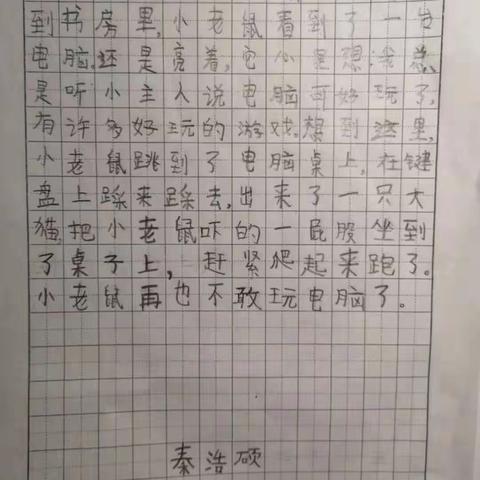 到书房里,小老鼠看到了一台
电脑,还是亮着,它心里想:我总
是听小主人说电脑可好玩了,
有许多好玩的游戏。想到这里,
小老鼠跳到了电脑桌上,在键
盘上踩来踩去,出来了一只大
猫,把小老鼠吓的一屁股坐到
了桌子上,赶紧爬起来跑了。
小老鼠再也不敢玩电脑了。
秦浩硕